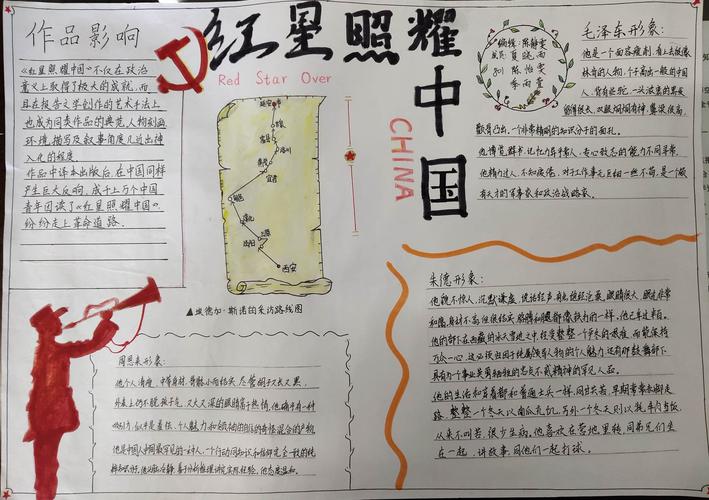 作品影响
《红星照耀中国》不仅在政治
意义上取得了极大的成就,而
且在报告文学创作的艺术手法上
也成为同类作品的典范,人物刻画
环境描写及叙事角度几近出神
入化的程度
作品中译本出版后,在中国同样
产生巨大反响,成千上万个中国
青年因读了《红星照耀中国》
纷纷走上革命道路.
红星照耀中国
Red Star Over
CHINA
延安
洛川
宜君
西安
▲埃德加·斯诺的采访路线图
编辑:陈静雯
夏晓雨
陈怡雯
李雨萱
毛泽东形象:
他是一个面容瘦削,看上去很像
林肯的人物,个子高出一般的中国
人,背有些驼,一头浓黑的头发
留得很长,双眼炯炯有神,鼻梁很高,
颧骨凸出,一个非常精明的知识分子的面孔。
他博览群书,记忆力异乎常人,专心致志的能力不同寻常,
他精力过人,不知疲倦,对于工作事无巨细一丝不苟,是一个颇
有天才的军事家和政治战略家。
朱德形象:
他貌不惊人,沉默谦虚,说话轻声,有点饱经沧桑,眼睛很大,眼光非常
和蔼,身材不高但很结实,胳膊和腿都像铁力的一样。他已年过半百。
他的部下在西藏的冰天雪地之中,经受整整一个严冬的艰难,而能保持
万众一心,
具有为个事业英勇牺牲的忠贞不贰精神的罕见人品。
他的生活和穿着都和普通士兵一样,同甘共苦,早期常常赤脚走
路,整整一个冬天以南瓜充饥,另外一个冬天则以牦牛肉当饭,
从来不叫苦,很少生病。他喜欢在营地里转,同弟兄们坐
在一起,讲故事,同他们一起打球。
周恩来形象:
他个人清瘦,中等身材,骨骼小而结实,尽管胡子又长又黑,
外表上仍不脱孩子气,又大又深的眼睛富于热情,他确乎有一种
吸引力,似乎是羞怯、个人魅力和领袖的自信的奇怪混合的产物。
他是中国人中间最罕见的一种人,一个行动同知识和信仰完全一致的纯
粹知识分子,